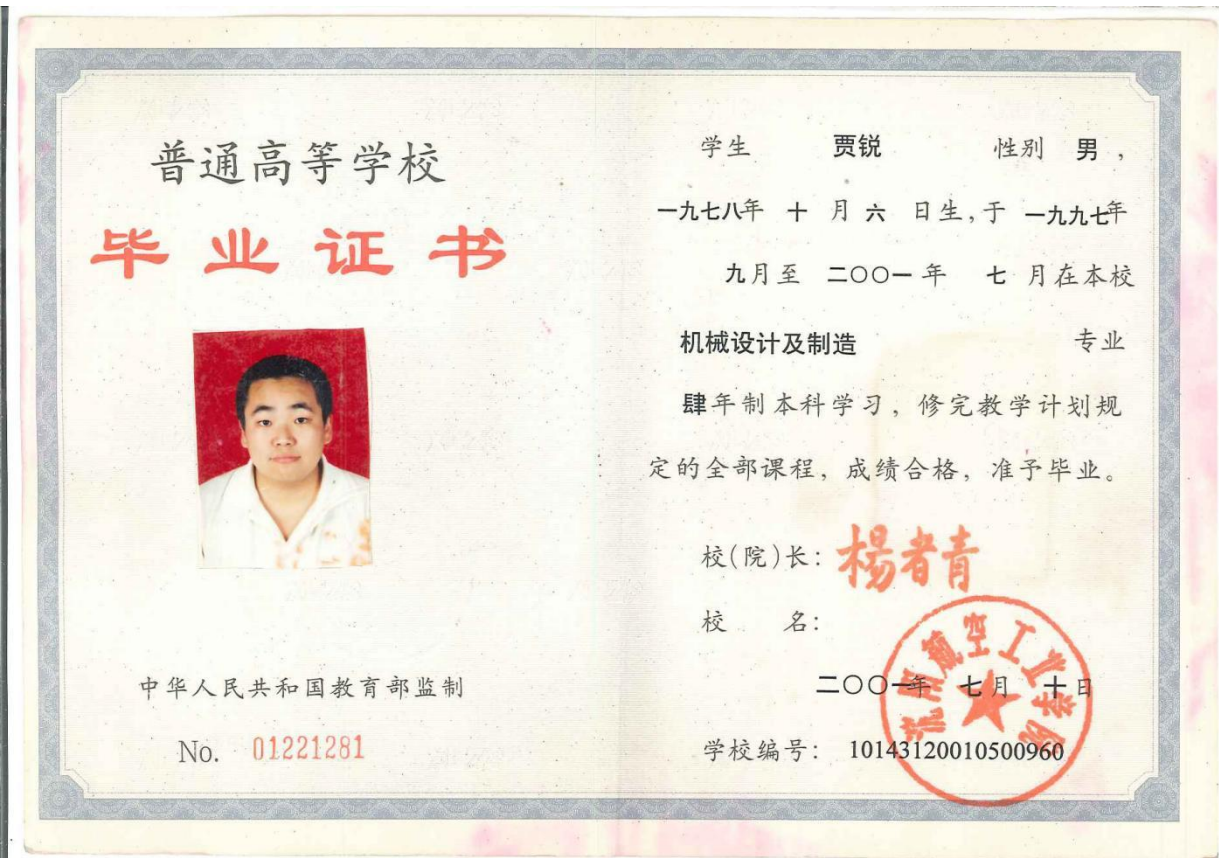 普通高等学校
毕业证书
中华人民共和国教育部监制
No. 01221281
学生 贾锐 性别 男，
一九七八年 十 月 六 日生，于 一九九七年
九月至 二〇〇一 年 七 月在本校
机械设计及制造 专业
肆年制本科学习，修完教学计划规
定的全部课程，成绩合格，准予毕业。
校(院)长：杨者青
校 名：
沈阳航空工业学院
二〇〇一年 七月 十日
学校编号： 10143120010500960